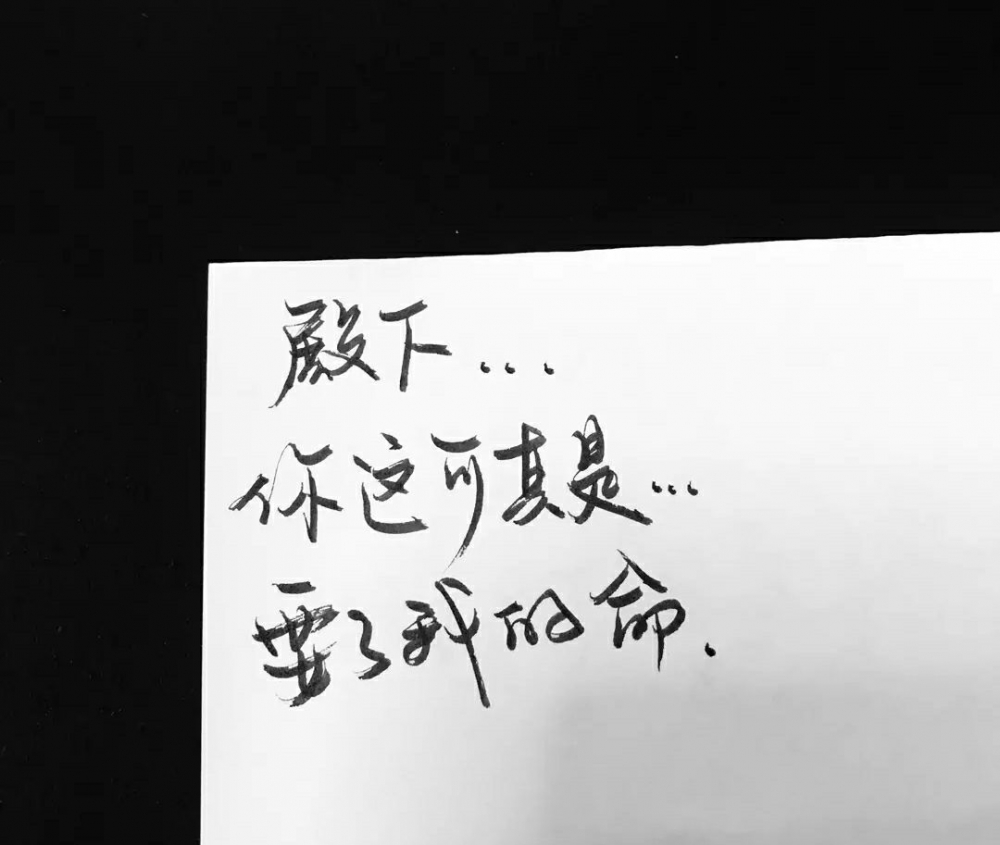 殿下...
你这可真是...
要了我的命.